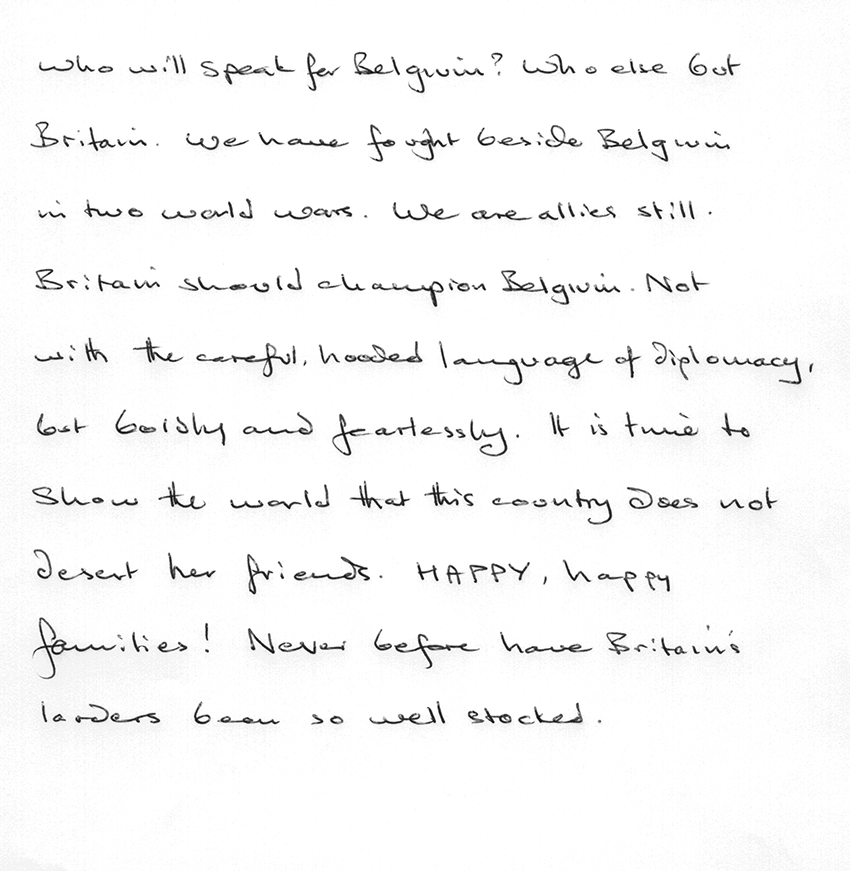 Who will speak for Belgium? Who else but
Britain. We have fought beside Belgium
in two world wars. We are allies still.
Britain should champion Belgium. Not
with the careful, hooded language of diplomacy,
but boldly and fearlessly. It is time to
show the world that this country does not
desert her friends. HAPPY, happy
families! Never before have Britain's
larders been so well stocked.